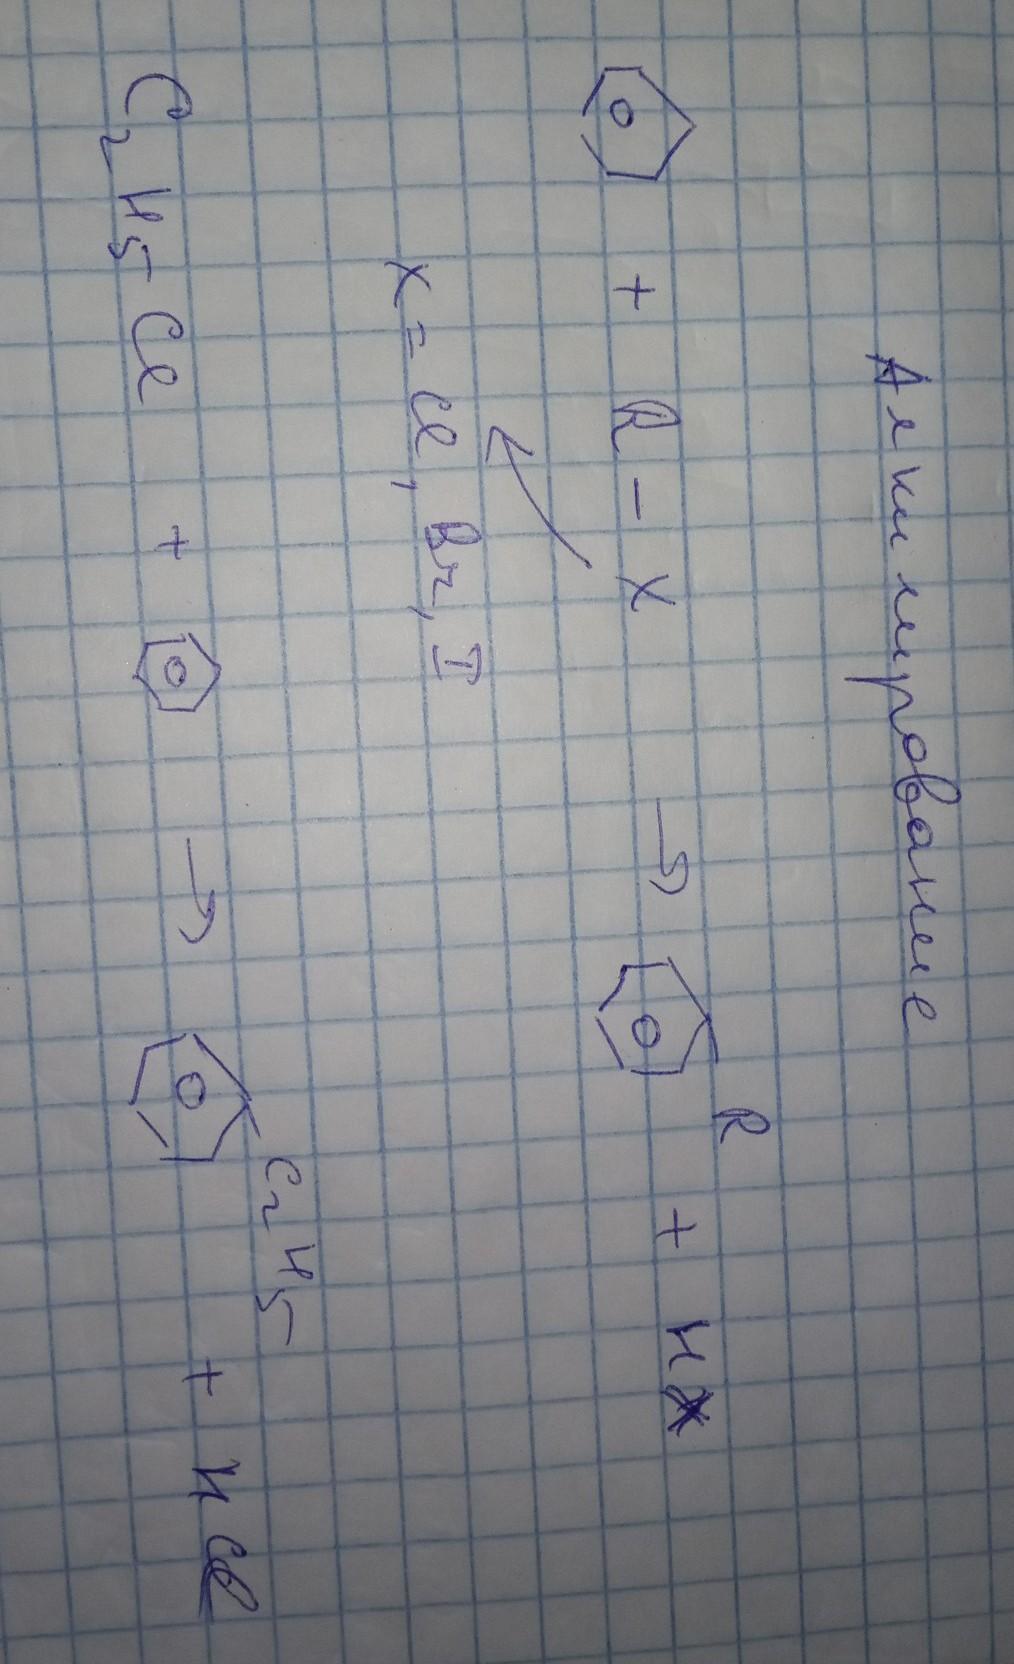 Алкилирование
+ R – X → R + HX
X = Cl, Br, I
C₂H₅Cl + → C₂H₅ + HCl